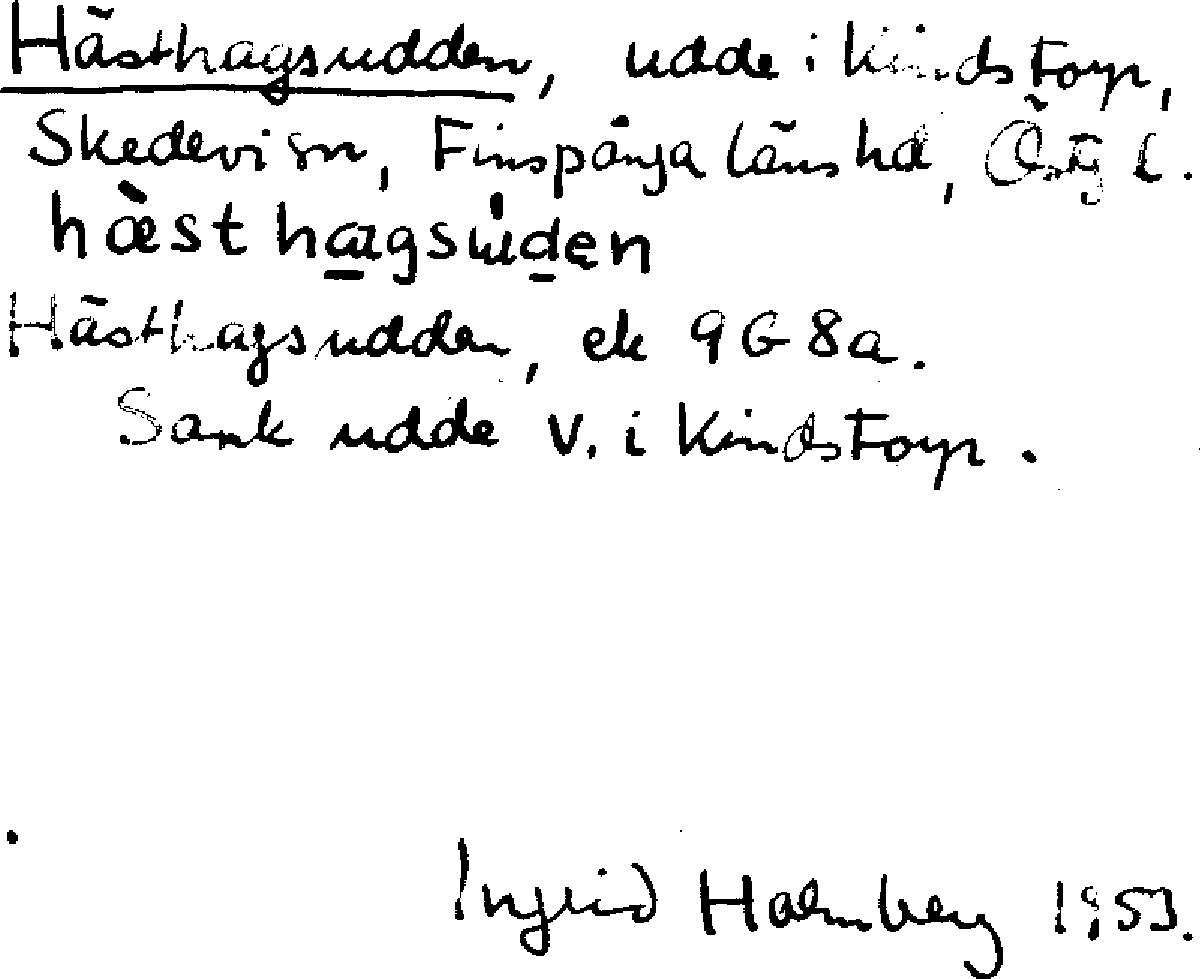 Hästhagsudden, udde i Kindstorp,
Skedevi sn, Finspånga läns hd, Östg l.
hàst hagsuden
Hästhagsudden, ek 9G8a.
Sank udde V. i Kindstorp.
Ingrid Holmberg 1953.